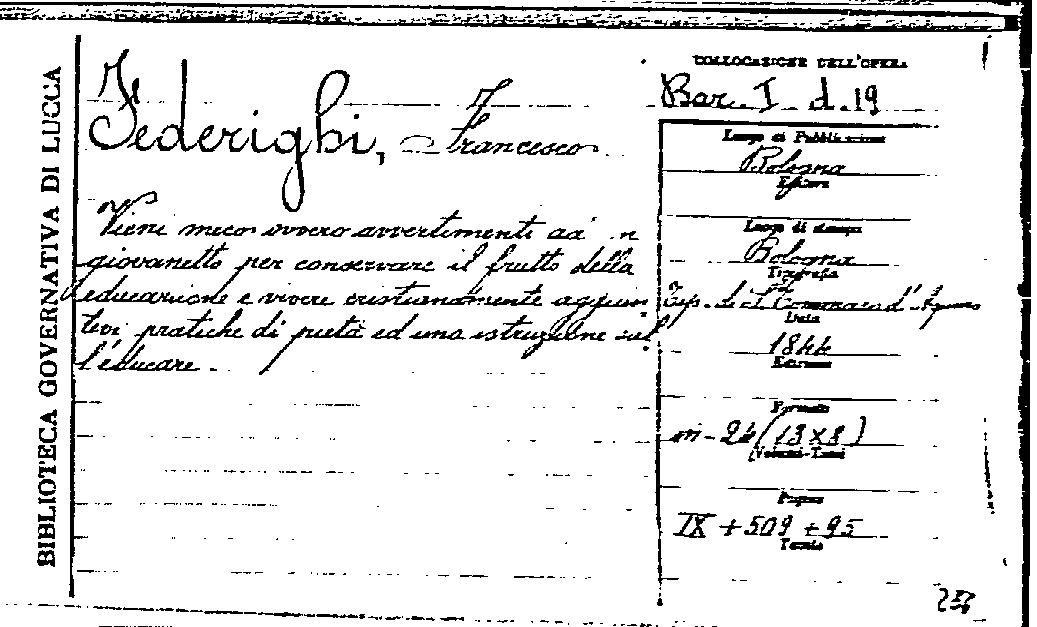 BIBLIOTECA GOVERNATIVA DI LUCCA
Federighi, Francesco
Vieni meco ovvero avvertimenti ad n
giovanetto per conservare il frutto della
educazione e vivere cristianamente aggiun
tevi pratiche di pietà ed una istruzione sul
l'educare.
COLLOCAZIONE DELL'OPERA
Bar. I. d. 19
Luogo di Pubblicazione
Bologna
Editore
Luogo di stampa
Bologna
Tipografia
Tip. di S. Tommaso d'Aquino
Data
1844
Edizione
Formato
in-24 (13 x 8)
Volumi-Tomi
Pagine
IX + 509 + 95
Tavole